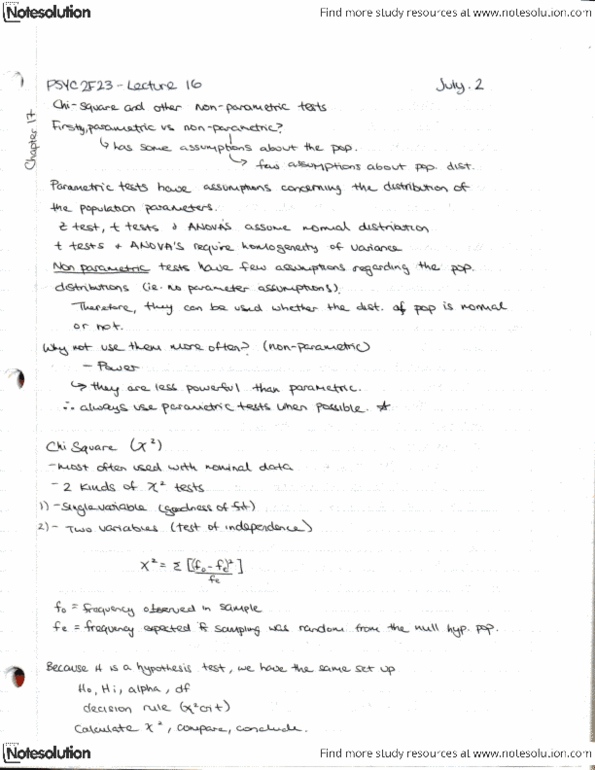 Notesolution
Find more study resources at www.notesolution.com
PSYC 2F23 - Lecture 16 July. 2
Chapter 17
Chi-square and other non-parametric tests
Firstly, parametric vs non-parametric?
↳ has some assumptions about the pop.
↳ few assumptions about pop. dist.
Parametric tests have assumptions concerning the distribution of
the population parameters.
z test, t tests & ANOVA's assume normal distribution
t tests + ANOVA'S require homogeneity of variance
Non parametric tests have few assumptions regarding the pop.
distributions (ie. no parameter assumptions).
Therefore, they can be used whether the dist. of pop is normal
or not.
Why not use them more often? (non-parametric)
- Power
↳ they are less powerful than parametric.
∴ always use parametric tests when possible. ☆
Chi Square (X²)
- most often used with nominal data
- 2 kinds of X² tests
1) - Single variable (goodness of fit)
2) - Two variables (test of independence)
X² = Σ [(fo - fe)²/fe]
fo = frequency observed in sample
fe = frequency expected if sampling was random from the null hyp. pop.
Because it is a hypothesis test, we have the same set up
Ho, Hi, alpha, df
decision rule (x²crit)
Calculate X², compare, conclude.
Notesolution
Find more study resources at www.notesolution.com